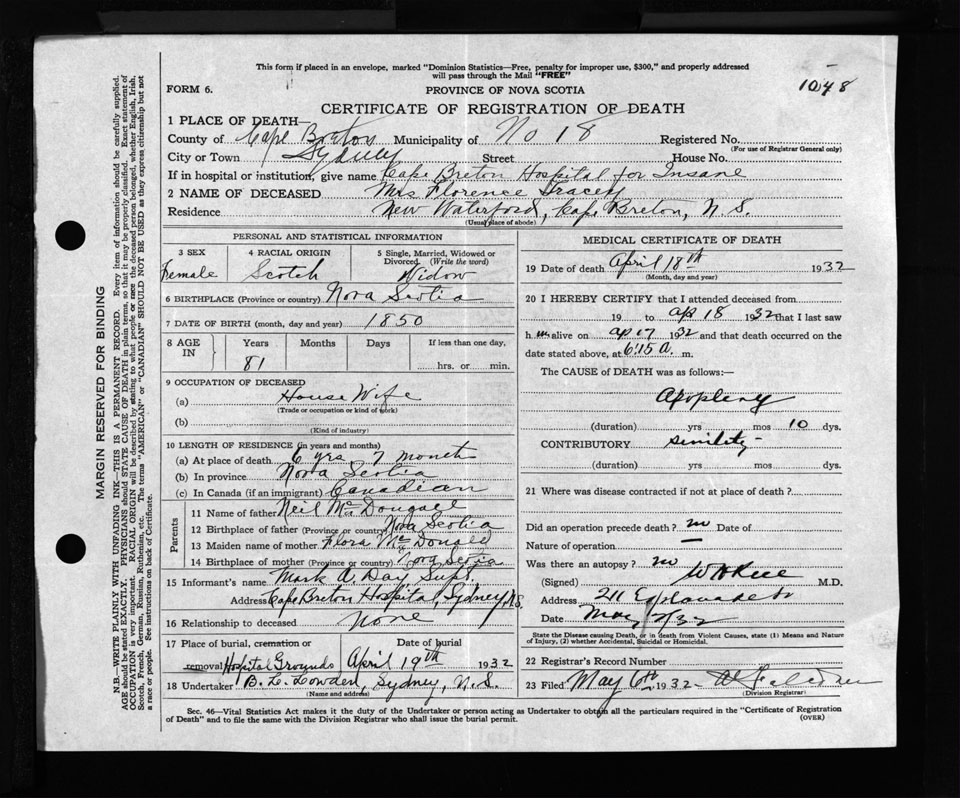 This form if placed in an envelope, marked "Dominion Statistics—Free, penalty for improper use, $300," and properly addressed
will pass through the Mail "FREE"
1048
FORM 6.
PROVINCE OF NOVA SCOTIA
CERTIFICATE OF REGISTRATION OF DEATH
1 PLACE OF DEATH—
County of Cape Breton Municipality of No 18 Registered No.
(For use of Registrar General only)
City or Town Sydney Street House No.
If in hospital or institution, give name Cape Breton Hospital for Insane
2 NAME OF DECEASED Mrs Florence Tracey
Residence New Waterford, Cape Breton, N.S.
(Usual place of abode)
PERSONAL AND STATISTICAL INFORMATION
3 SEX
Female
4 RACIAL ORIGIN
Scotch
5 Single, Married, Widowed or
Divorced (Write the word)
Widow
6 BIRTHPLACE (Province or country) Nova Scotia
7 DATE OF BIRTH (month, day and year) 1850
8 AGE IN Years Months Days If less than one day,
81 hrs. or min.
9 OCCUPATION OF DECEASED
(a) House Wife
(Trade or occupation or kind of work)
(b)
(Kind of industry)
10 LENGTH OF RESIDENCE (in years and months)
(a) At place of death 6 yrs 7 month
(b) In province Nova Scotia
(c) In Canada (if an immigrant) Canadian
Parents
11 Name of father Neil McDougall
12 Birthplace of father (Province or country) Nova Scotia
13 Maiden name of mother Flora McDonald
14 Birthplace of mother (Province or country) Nova Scotia
15 Informant's name Mark A. Day, Supt.
Address Cape Breton Hospital, Sydney, N.S.
16 Relationship to deceased None
17 Place of burial, cremation or removal Hospital Grounds
Date of burial
April 19th 1932
18 Undertaker B. L. Lowden, Sydney, N.S.
(Name and address)
MEDICAL CERTIFICATE OF DEATH
19 Date of death April 18th 1932
(Month, day and year)
20 I HEREBY CERTIFY that I attended deceased from
19 to Ap 18 1932 that I last saw
h alive on Ap 17 1932 and that death occurred on the
date stated above, at 6:15 A. m.
The CAUSE of DEATH was as follows:—
Apoplexy
(duration) yrs mos 10 dys.
CONTRIBUTORY senility
(duration) yrs mos dys.
21 Where was disease contracted if not at place of death?
Did an operation precede death? no Date of
Nature of operation —
Was there an autopsy? no
(Signed) M.D.
Address 211 Esplanade
Date May 32
State the Disease causing Death, or in death from Violent Causes, state (1) Means and Nature
of Injury, (2) whether Accidental, Suicidal or Homicidal.
22 Registrar's Record Number
23 Filed May 6th 1932
(Division Registrar)
Sec. 46—Vital Statistics Act makes it the duty of the Undertaker or person acting as Undertaker to obtain all the particulars required in the "Certificate of Registration
of Death" and to file the same with the Division Registrar who shall issue the burial permit.
(OVER)
MARGIN RESERVED FOR BINDING
N.B.—WRITE PLAINLY WITH UNFADING INK—THIS IS A PERMANENT RECORD. Every item of information should be carefully supplied.
AGE should be stated EXACTLY. PHYSICIANS should STATE CAUSE OF DEATH in plain terms, so that it may be properly classified. Exact statement of
OCCUPATION is very important. RACIAL ORIGIN will be described by stating to what people or race the deceased person belonged, whether English, Irish,
Scotch, French, German, Russian, Ruthenian, etc. The terms "AMERICAN" or "CANADIAN" SHOULD NOT BE USED as they express citizenship but not
a race or people. See instructions on back of Certificate.